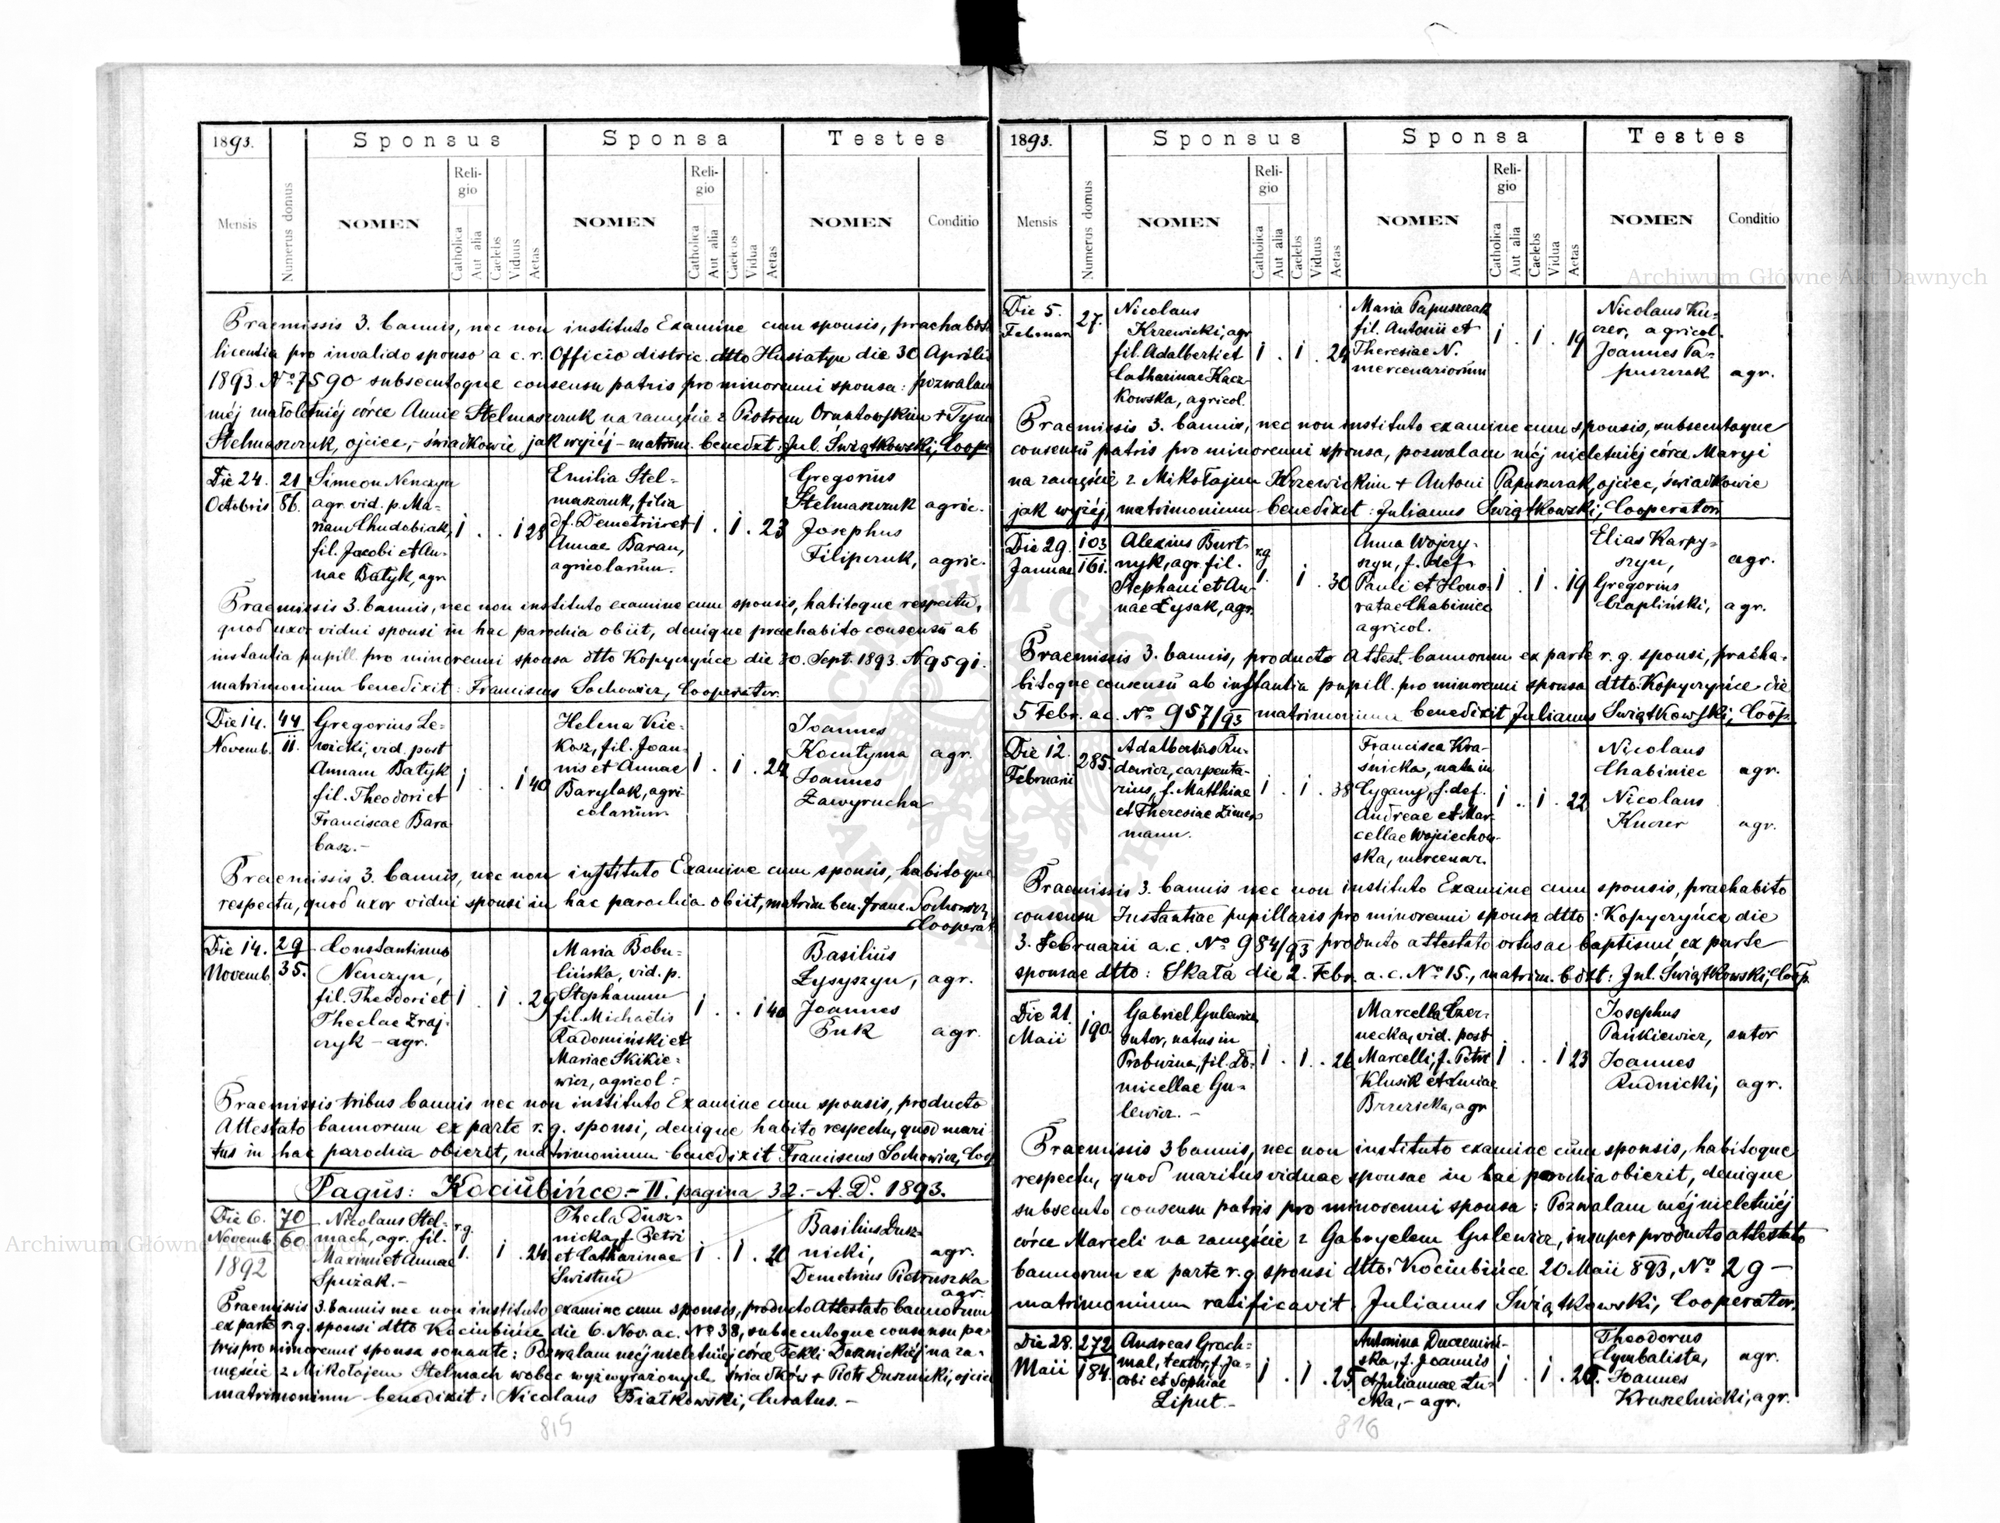 1893.
Sponsus
Sponsa
Testes
Mensis
Numerus domus
NOMEN
Religio
Catholica
Aut alia
Caelebs
Viduus
Aetas
NOMEN
Religio
Catholica
Aut alia
Caelebs
Vidua
Aetas
NOMEN
Conditio
Praemissis 3. bannis, nec non instituto Examine cum sponsis, praehabita
licentia pro invalido sponso a c. r. Officio distric. dtto Husiatyn die 30 Aprilis
1893 No 7590 subsecutoque consensu patris pro minorenni sponsa: pozwalam
mej małoletniéj córce Annie Stelmaszczuk na zamęście z Piotrem Ornatowskim + Tyma
Stelmaszczuk, ojciec, - świadkowie jak wyżéj - matrim. benedixt: Jul. Świątkowski, Coop.
Die 24. Octobris
21
86.
Simeon Nenczyn
agr. vid. p. Ma-
riam Chudobiak,
fil. Jacobi et An-
nae Batyk, agr.
1 . . 1 28
Emilia Stel-
maszczuk, filia
df. Demetrii et
Annae Baran,
agricolarum.
1 . 1 . 23
Gregorius
Stelmaszczuk agric.
Josephus
Filipczuk, agric.
Praemissis 3. bannis, nec non instituto examine cum sponsis, habitoque respectu,
quod uxor vidui sponsi in hac parochia obiit, denique praehabito consensu ab
instantia pupill. pro minorenni sponsa dtto Kopyczyńce die 30. Sept. 1893. N 9591.
matrimonium benedixit: Franciscus Sochowicz, Cooperator.
Die 14. Novemb.
44
11.
Gregorius Le-
wicki, vid. post
Annam Batyk
fil. Theodori et
Franciscae Bara
basz.-
1 . . 1 40
Helena Kie-
kosz, fil. Joan-
nis et Annae
Barylak, agri
colarum
1 . 1 . 24
Ioannes
Kocutyma agr.
Ioannes
Zawyrucha
Praemissis 3. bannis, nec non instituto Examine cum sponsis, habitoque
respectu, quod uxor vidui sponsi in hac parochia obiit, matrim. ben. Franc. Sochowicz,
Cooperat
Die 14. Novemb.
29
35.
Constantinus
Nenczyn,
fil. Theodori et
Theclae Zraj-
czyk - agr.
1 . 1 . 29
Maria Bobu-
lińska, vid. p.
Stephanum
fil. Michaelis
Radomiński et
Mariae Skikie-
wicz, agricol:
1 . . 1 40
Basilius
Łysyszyn, agr.
Joannes
Puk agr.
Praemissis tribus bannis nec non instituto Examine cum sponsis, producto
Attestato bannorum ex parte r. g. sponsi, denique habito respectu, quod mari
tus in hac parochia obierit, matrimonium benedixit Franciscus Sochowicz, Coop
Pagus: Kociubińce. - II. pagina 32. - A. Do. 1893.
Die 6. Novemb. 1892
70
60
Nicolaus Stel-
mach, agr. fil.
Maximi et Annae
Spużak.-
r.g. 1. 1 . 24
Thecla Dusz-
nicka, f. Petri
et Catharinae
Swistun
1 . 1 . 20
Basilius Dusz-
nicki, agr.
Demetrius Pietruszka
agr.
Praemissis 3. bannis nec non instituto examine cum sponsis, producto Attestato bannorum
ex parte r. g. sponsi dtto Kociubińce die 6. Nov. ac. No 38, subsecutoque consensu pa-
tris pro minorenni sponsa sonante: Pozwalam mej nieletniéj córce Tekli Dusznickiéj na za-
męście z Mikołajem Stelmach wobec wyżwyrażonych świadków + Piotr Dusznicki, ojciec
matrimonium benedixit: Nicolaus Białkowski, Curatus. -
815
1893.
Sponsus
Sponsa
Testes
Mensis
Numerus domus
NOMEN
Religio
Catholica
Aut alia
Caelebs
Viduus
Aetas
NOMEN
Religio
Catholica
Aut alia
Caelebs
Vidua
Aetas
NOMEN
Conditio
Die 5. Februar
27.
Nicolaus
Krzewicki, agr.
fil. Adalberti et
Catharinae Kacz-
kowska, agricol.
1 . 1 . 24
Maria Papuszczak
fil. Antonii et
Theresiae N.
mercenariorum
1 . 1 . 19
Nicolaus Ku-
czer, agricol.
Joannes Pa-
puszczak agr.
Praemissis 3. bannis, nec non instituto examine cum sponsis, subsecutoque
consensu patris pro minorenni sponsa, pozwalam mej nieletniéj córce Maryi
na zamęście z Mikołajem Krzewickim + Antoni Papuszczak, ojciec, świadkowie
jak wyżéj, matrimonium benedixit: Julianus Świątkowski, Cooperator
Die 29. Januae
103
161.
Alexius Burt-
nyk, agr. fil.
Stephani et An-
nae Łysak, agr.
r.g. 1. 1 . 30
Anna Wojczy-
szyn, f. def.
Pauli et Hono-
ratae Chabiniec
agricol.
1 . 1 . 19
Elias Karpy-
szyn, agr.
Gregorius
Czapliński, agr.
Praemissis 3. bannis, producto Attest. bannorum ex parte r. g. sponsi, praeha-
bitoque consensu ab instantia pupill. pro minorenni sponsa dtto: Kopyczyńce die
5 Febr. ac. No 957/93 matrimonium benedixit Julianus Świątkowski, Coop.
Die 12. Februarii
285.
Adalbertus Ru-
dowicz, carpenta-
rius, f. Matthiae
et Theresiae Zimer-
mann.
1 . 1 . 38
Francisca Kra-
snicka, nata in
Cygany, f. def.
Andreae et Mar-
cellae Wojciechow-
ska, mercenar.
1 . 1 . 22
Nicolaus
Chabiniec agr.
Nicolaus
Kuczer agr.
Praemissis 3. bannis nec non instituto Examine cum sponsis, praehabito
consensu Instantiae pupillaris pro minorenni sponsa dtto: Kopyczyńce die
3. Februarii a. c. No 984/93 producto attestato ortus ac baptismi ex parte
sponsae dtto: Skała die 2. Febr. a. c. No 15., matrim. bdxt: Jul. Świątkowski, Coop.
Die 21. Maii
190.
Gabriel Gulewicz
sutor, natus in
Probużna, fil. Do-
micellae Gu-
lewicz. -
1 . 1 . 26
Marcella Czer-
necka, vid. post
Marcelli, f. Petri
Klusik et Luciae
Brzezicka, agr
1 . . 1 23
Josephus
Pańkiewicz, sutor
Joannes
Rudnicki, agr.
Praemissis 3 bannis, nec non instituto examine cum sponsis, habitoque
respectu, quod maritus viduae sponsae in hac parochia obierit, denique
subsecuto consensu patris pro minorenni sponsa: Pozwalam mej nieletniéj
córce Marceli na zamęście z Gabryelem Gulewicz, insuper producto attestato
bannorum ex parte r. g. sponsi dtto: Kociubińce 20 Maii 893, No 29 -
matrimonium ratificavit Julianus Świątkowski, Cooperator.
Die 28. Maii
272
184.
Andreas Groch-
mal, textor, f. Ja-
cobi et Sophiae
Liput.-
1 . 1 . 25
Antonina Duczemiń-
ska, f. Joannis
et Juliannae Łu-
cka, - agr.
1 . 1 . 25.
Theodorus
Cymbalista, agr.
Joannes
Kruszelnicki, agr.
816
Archiwum Główne Akt Dawnych
Archiwum Główne Akt Dawnych